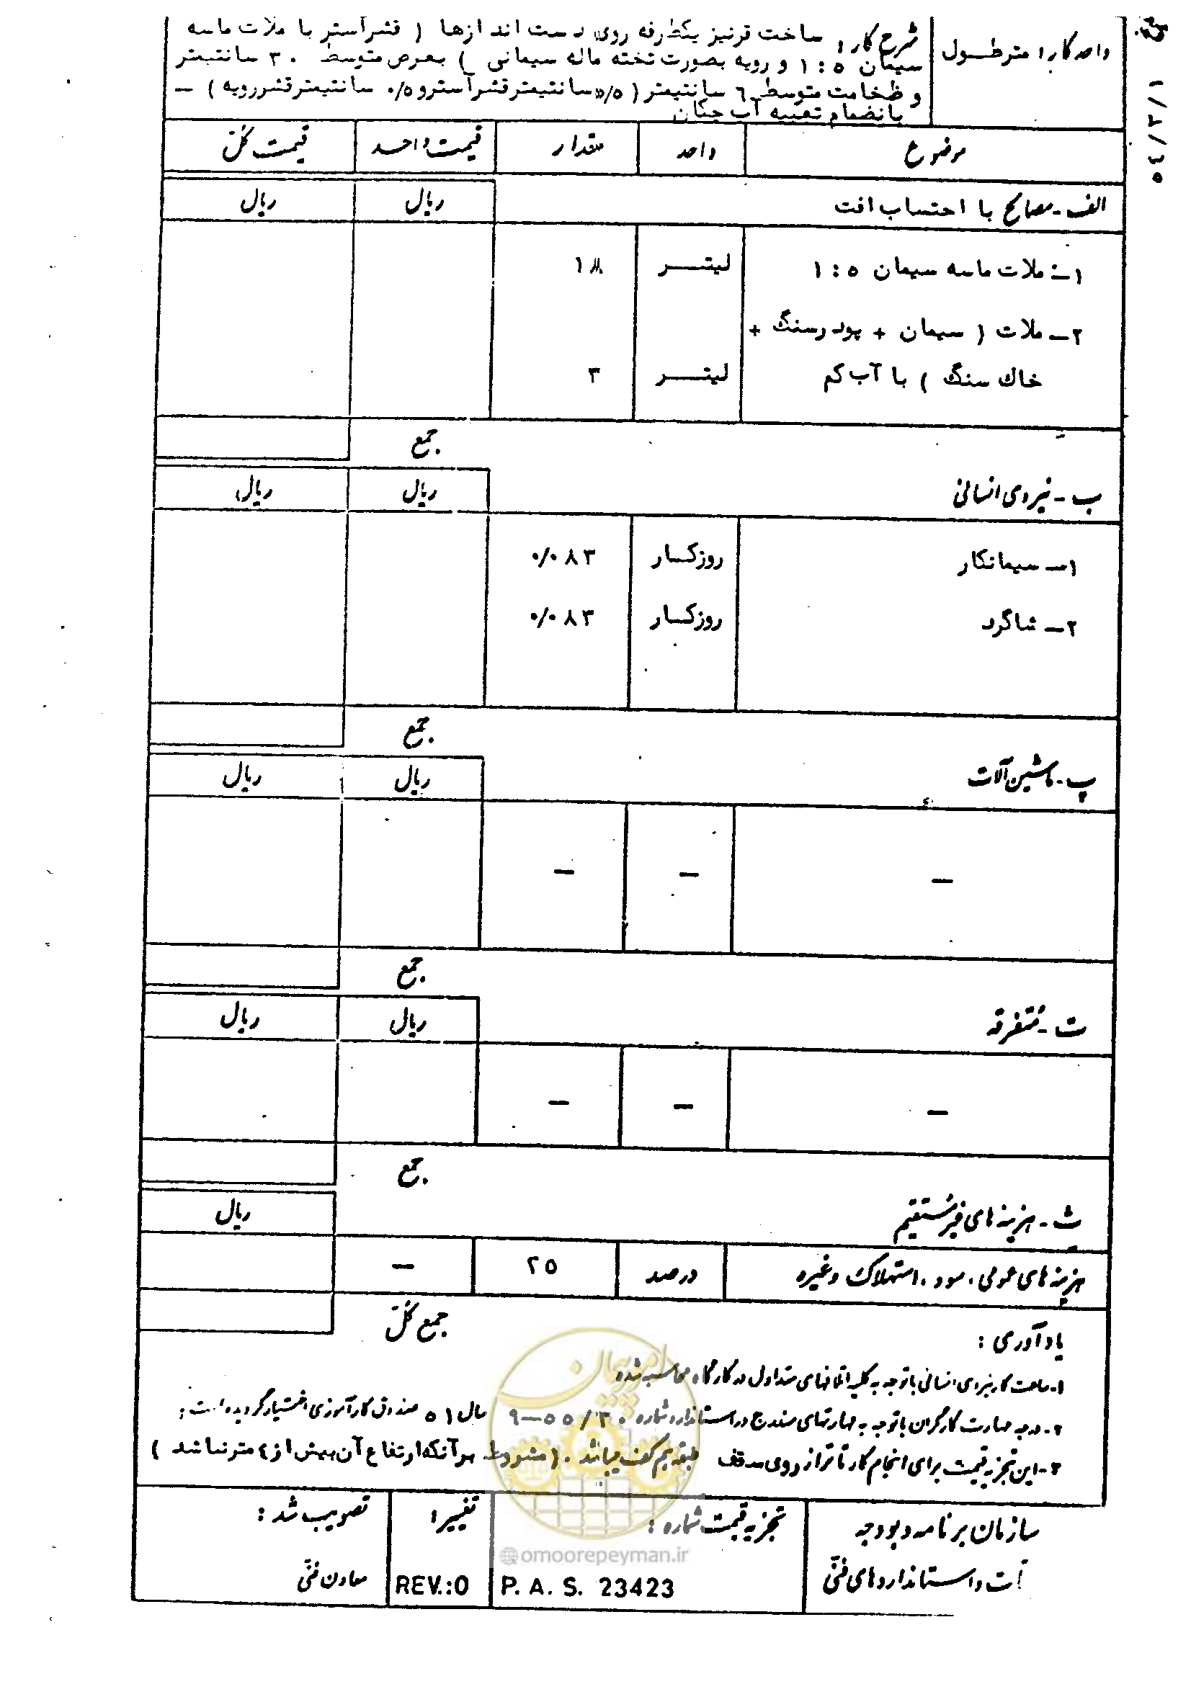 واحد کار : متر طول
شرح کار : ساخت قرنیز یکطرفه روی دست اندازها ( قشر آستر با ملات ماسه
سیمان ۱:۵ و رویه بصورت تخته ماله سیمانی ) بعرض متوسط ۳۰ سانتیمتر
و ضخامت متوسط ۶ سانتیمتر ( ۵/۵ سانتیمتر قشر آستر و ۰/۵ سانتیمتر قشر رویه ) –
بانضمام تعبیه آب چکان
موضوع واحد مقدار قیمت واحد قیمت کل
الف - مصالح با احتساب افت ریال ریال
۱- ملات ماسه سیمان ۱:۵ لیتر ۱۸
۲- ملات ( سیمان + پودر سنگ +
خاک سنگ ) با آب کم لیتر ۳
جمع
ب - نیروی انسانی ریال ریال
۱- سیمانکار روزکار ۰/۰۸۳
۲- شاگرد روزکار ۰/۰۸۳
جمع
پ - ماشین آلات ریال ریال
– – –
جمع
ت - متفرقه ریال ریال
– – –
جمع
ث - هزینه های غیر مستقیم ریال
هزینه های عمومی ، سود ، استهلاک و غیره درصد ۲۵ –
جمع کل
یادآوری :
۱- ساعت کار نیروی انسانی با توجه به کلیه اتفاقهای متداول در کارگاه محاسبه شده
۲- درجه مهارت کارگران با توجه به مهارتهای مندرج در استاندارد شماره ۹-۵۵/۳۰ سال ۵۱ صندوق کارآموزی اختیار گردیده است :
۳- این تجزیه قیمت برای انجام کار تا تراز روی سقف طبقه هم کف میباشد . ( مشروط بر آنکه ارتفاع آن بیش از ۴ متر نباشد )
سازمان برنامه و بودجه
ات و استانداردهای فنی
تجزیه قیمت شماره :
P. A. S. 23423
تغییر :
REV.:0
تصویب شد :
معاون فنی
امور پیمان
@omoorepeyman.ir